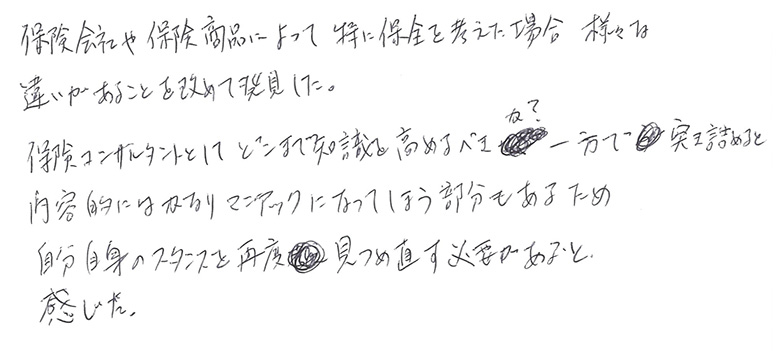 保険会社や保険商品によって 特に保全を考えた場合 様々な
違いがあることを改めて発見した。
保険コンサルタントとして どこまで知識を高めるべきか？ 一方で 突き詰めると
内容的にはかなりマニアックになってしまう部分もあるため
自分自身のスタンスを再度 見つめ直す必要があると
感じた。